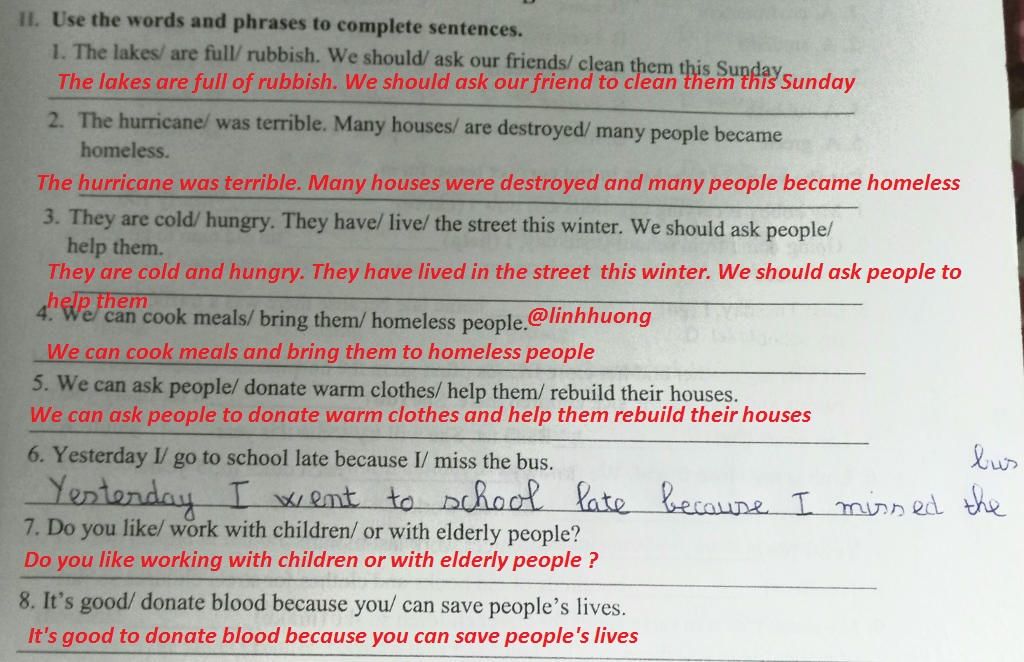 II. Use the words and phrases to complete sentences.
1. The lakes/ are full/ rubbish. We should/ ask our friends/ clean them this Sunday.
The lakes are full of rubbish. We should ask our friend to clean them this Sunday
2. The hurricane/ was terrible. Many houses/ are destroyed/ many people became
homeless.
The hurricane was terrible. Many houses were destroyed and many people became homeless
3. They are cold/ hungry. They have/ live/ the street this winter. We should ask people/
help them.
They are cold and hungry. They have lived in the street this winter. We should ask people to
help them
4. We/ can cook meals/ bring them/ homeless people. @linhhuong
We can cook meals and bring them to homeless people
5. We can ask people/ donate warm clothes/ help them/ rebuild their houses.
We can ask people to donate warm clothes and help them rebuild their houses
6. Yesterday I/ go to school late because I/ miss the bus.
Yesterday I went to school late because I missed the
bus
7. Do you like/ work with children/ or with elderly people?
Do you like working with children or with elderly people ?
8. It's good/ donate blood because you/ can save people's lives.
It's good to donate blood because you can save people's lives